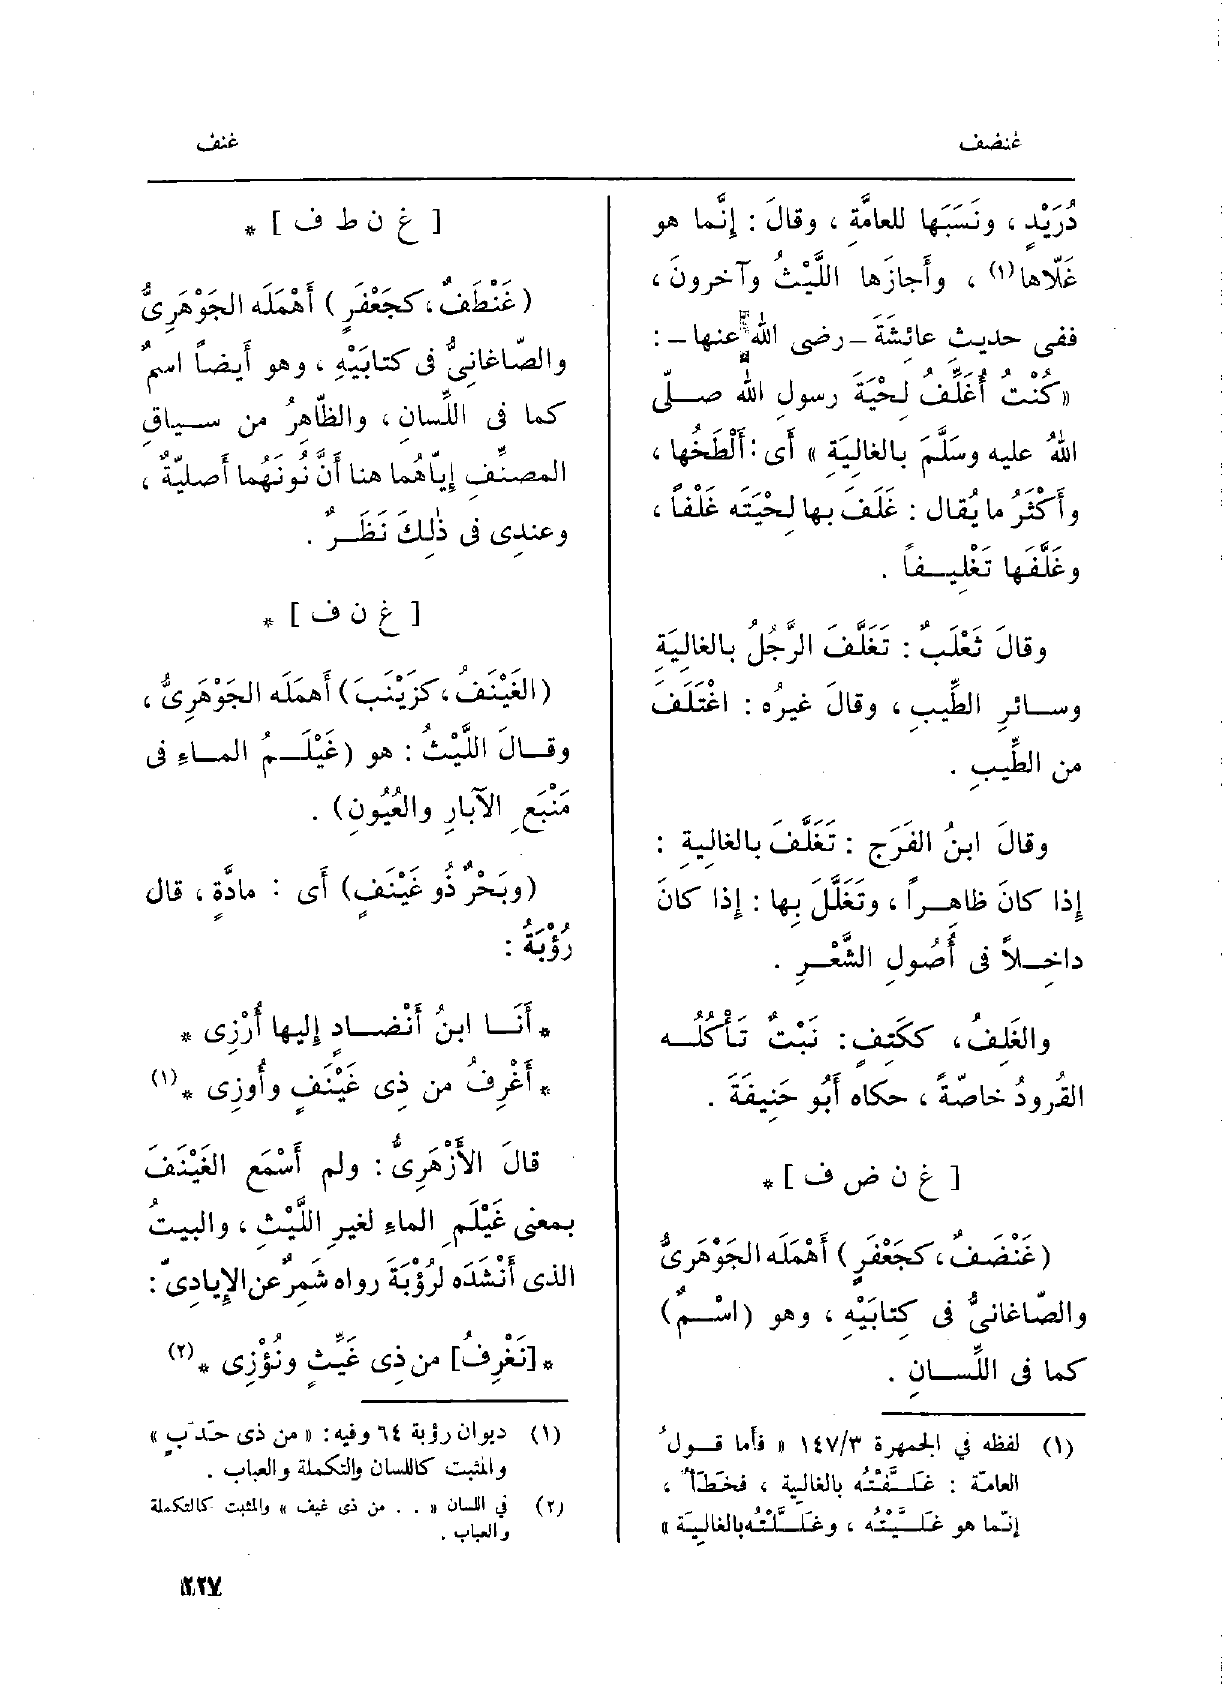 غنضف
غنف
دُرَيْدٍ ، ونَسَبَها للعامَّةِ ، وقالَ : إِنَّما هو
غَلّاها(١) ، وأَجازَها اللَّيْثُ وآخرونَ ،
ففى حديث عائِشَةَ ـ رضى الله عنها ـ :
« كُنْتُ أُغَلِّفُ لِحْيَةَ رسولِ الله صلّى
اللهُ عليه وسَلَّمَ بالغالِيَةِ » أى : أَلْطَخُها ،
وأَكْثَرُ ما يُقال : غَلَفَ بها لِحْيَتَه غَلْفاً ،
وغَلَّفَها تَغْلِيفاً .
وقالَ ثَعْلَبٌ : تَغَلَّفَ الرَّجُلُ بالغالِيَةِ
وسائرِ الطِّيبِ ، وقالَ غيرُه : اغْتَلَفَ
من الطِّيبِ .
وقالَ ابنُ الفَرَجِ : تَغَلَّفَ بالغالِيةِ :
إِذا كانَ ظاهِراً ، وتَغَلَّلَ بِها : إِذا كانَ
داخِلاً فى أُصُولِ الشَّعْرِ .
والغَلِفُ ، ككَتِفٍ : نَبْتٌ تَأْكُلُه
القُرودُ خاصّةً ، حكاه أَبُو حَنِيفَةَ .
[ غ ن ض ف ] *
( غَنْضَفٌ ، كجَعْفَرٍ ) أَهْمَله الجَوْهَرِىُّ
والصّاغانِىُّ فى كِتابَيْهِ ، وهو (اسْمٌ)
كما فى اللِّسانِ .
(١) لفظه في الجمهرة ١٤٧/٣ « فأما قولُ
العامّة : غلَّفْتُه بالغالية ، فخَطَأٌ ،
إنّما هو غَلَّيْتُه ، وغَلَّلْتُه بالغالِيَة »
[ غ ن ط ف ] *
( غَنْطَفٌ ، كجَعْفَرٍ ) أَهْمَله الجَوْهَرِىُّ
والصّاغانِىُّ فى كتابَيْهِ ، وهو أَيضاً اسمٌ
كما فى اللِّسانِ ، والظّاهِرُ من سياقِ
المصنِّفِ إِيّاهُما هنا أَنَّ نُونَهُما أَصلِيَّةٌ ،
وعندِى فى ذٰلِكَ نَظَرٌ .
[ غ ن ف ] *
(الغَيْنَفُ ، كزَيْنَبَ) أَهمَله الجَوْهَرِىُّ ،
وقالَ اللَّيْثُ : هو (غَيْلَمُ الماءِ فى
مَنْبَعِ الآبارِ والعُيُونِ) .
(وبَحْرٌ ذُو غَيْنَفٍ) أَى : مادَّةٍ ، قال
رُؤْبَةُ :
* أَنَا ابنُ أَنْضادٍ إِليها أُرْزِى *
* أَغْرِفُ من ذِى غَيْنَفٍ وأُوزِى *(١)
قالَ الأَزْهَرِىُّ : ولم أَسْمَعِ الغَيْنَفَ
بمعنى غَيْلَمِ الماءِ لغيرِ اللَّيْثِ ، والبيتُ
الذى أَنْشَدَه لرُؤْبَةَ رواه شَمِرٌ عن الإِيادِىّ :
* [نَغْرِفُ] من ذِى غَيِّثٍ ونُؤْزِى *(٢)
(١) ديوان رؤبة ٦٤ وفيه : « من ذى حَدَبٍ »
والمثبت كاللسان والتكملة والعباب .
(٢) في اللسان « . . من ذى غيف » والمثبت كالتكملة
والعباب .
٢٢٧